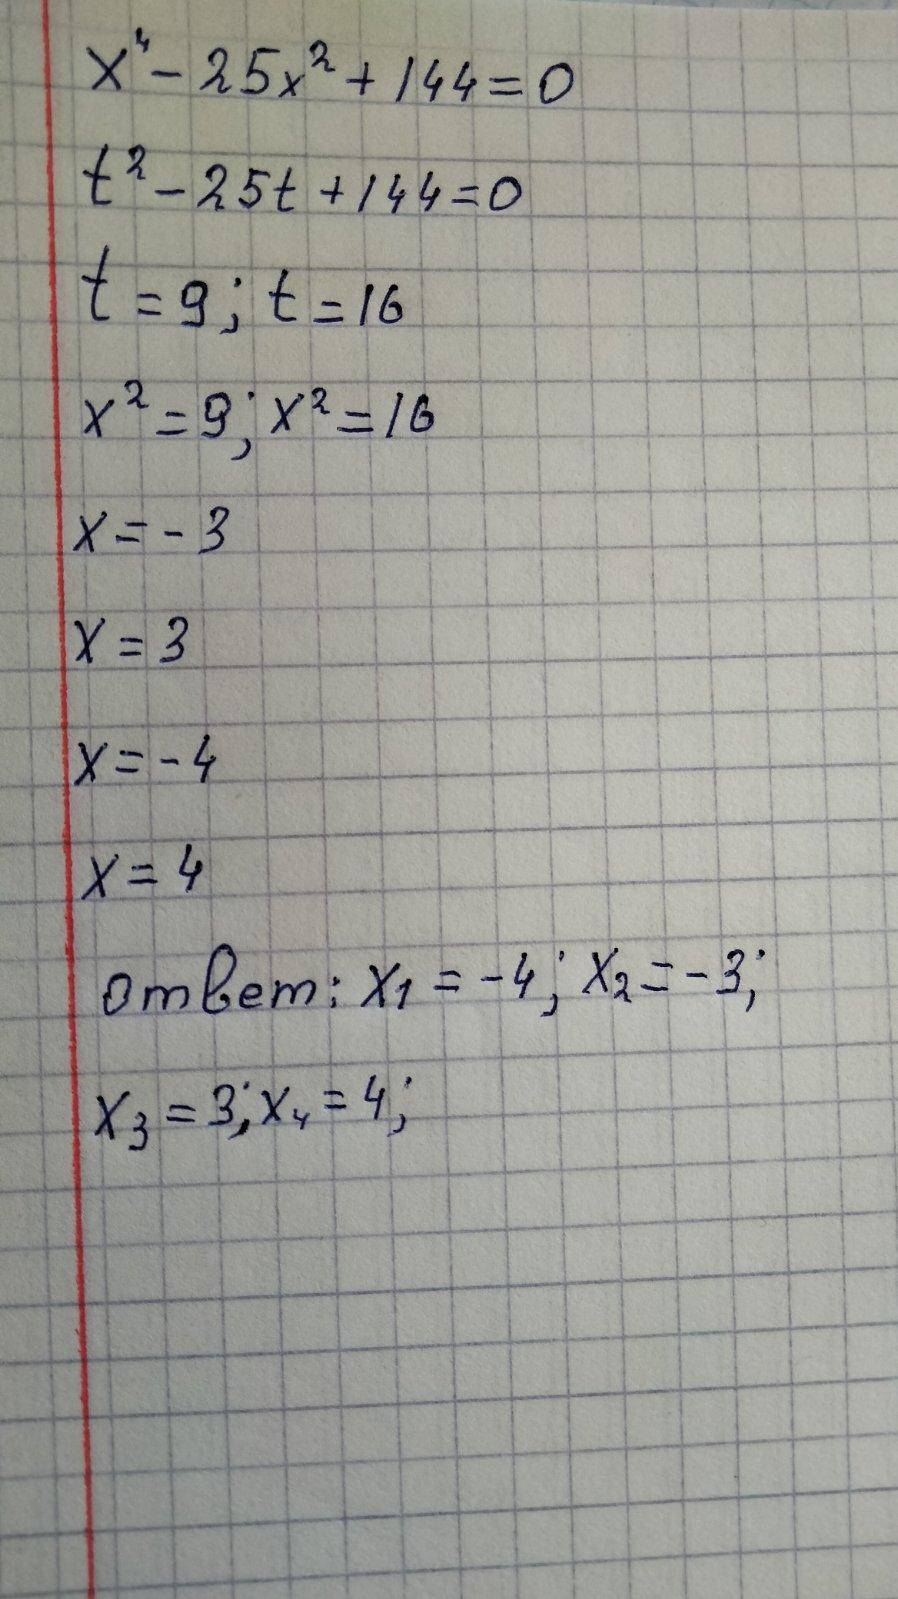 x⁴ - 25x² + 144 = 0
t² - 25t + 144 = 0
t = 9; t = 16
x² = 9; x² = 16
x = - 3
x = 3
x = - 4
x = 4
ответ: x₁ = -4; x₂ = -3;
x₃ = 3; x₄ = 4;